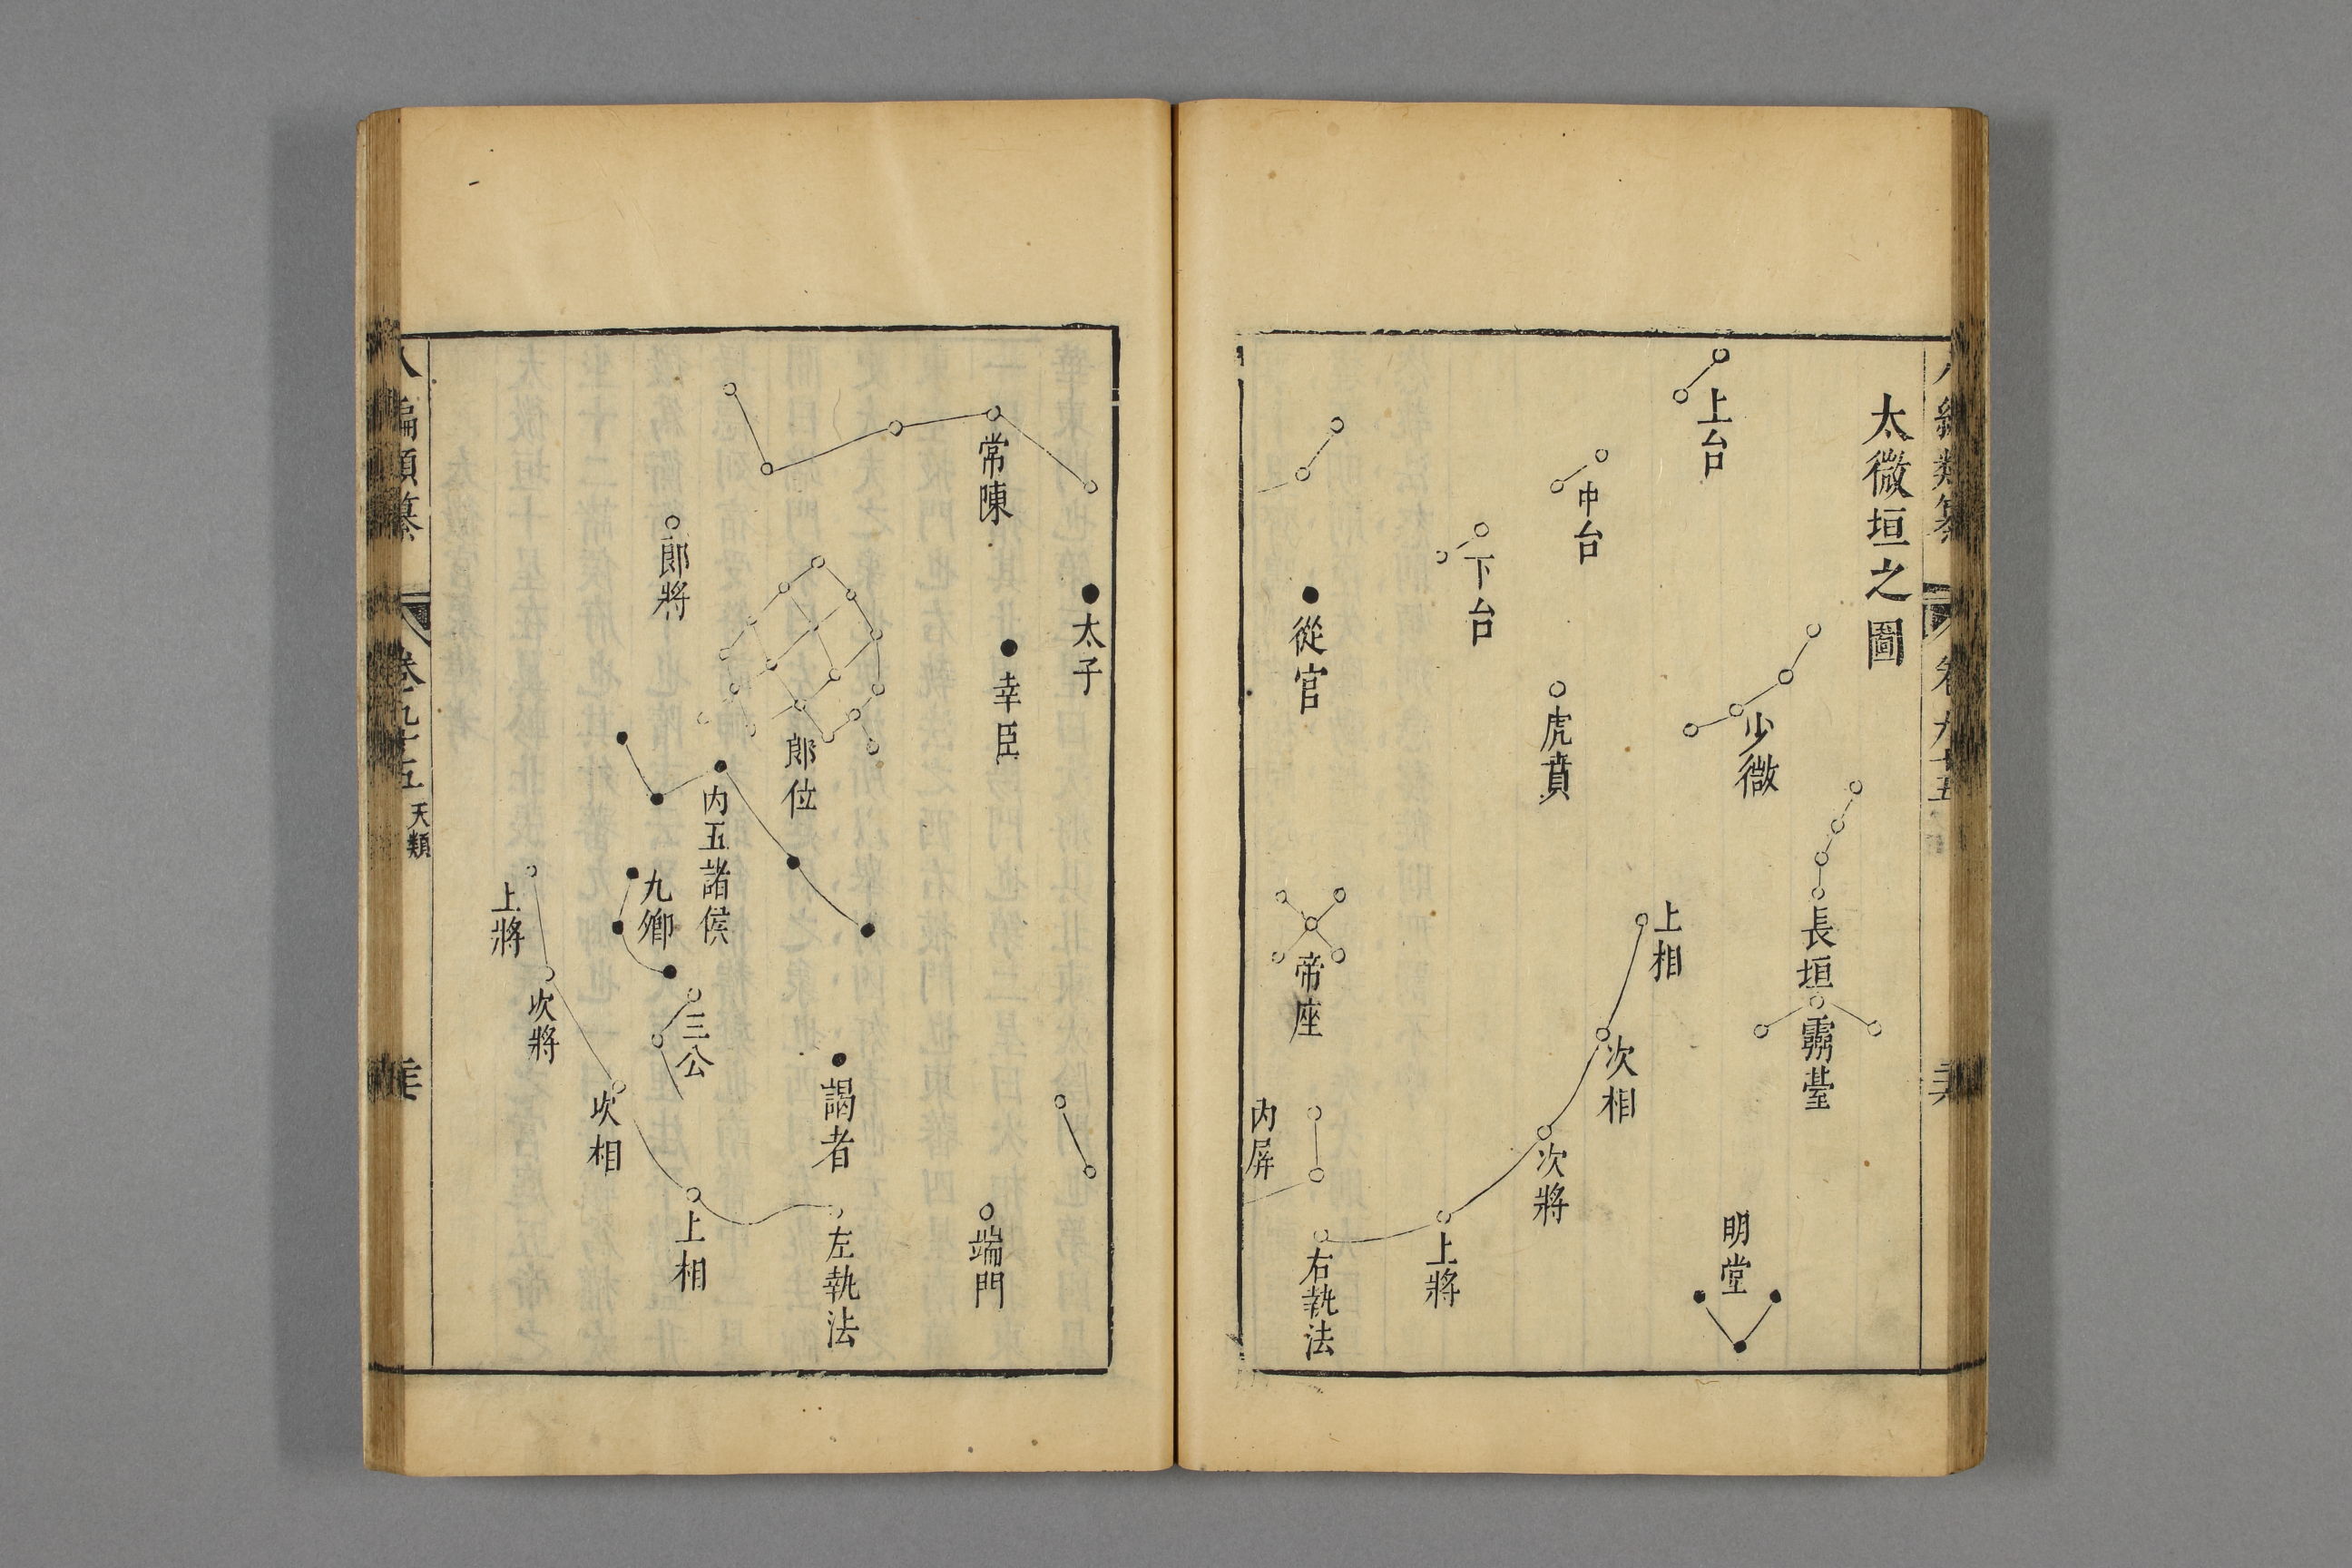 太微垣之圖
上台
中台
下台
少微
虎賁
長垣
靈臺
上相
次相
次將
上將
明堂
從官
帝座
内屏
右執法
太子
常陳
幸臣
端門
郎位
謁者
左執法
内五諸侯
郎將
九卿
三公
上相
次相
次將
上將
八編類纂
卷九十五
天類